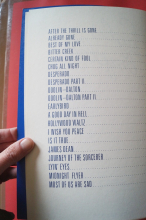 AFTER THE THRILL IS GONE
ALREADY GONE
BEST OF MY LOVE
BITTER CREEK
CERTAIN KIND OF FOOL
CHUG ALL NIGHT
DESPERADO
DESPERADO PART II
DOOLIN-DALTON
DOOLIN-DALTON PART II
EARLYBIRD
A GOOD DAY IN HELL
HOLLYWOOD WALTZ
I WISH YOU PEACE
IS IT TRUE
JAMES DEAN
JOURNEY OF THE SORCERER
LYIN' EYES
MIDNIGHT FLYER
MOST OF US ARE SAD